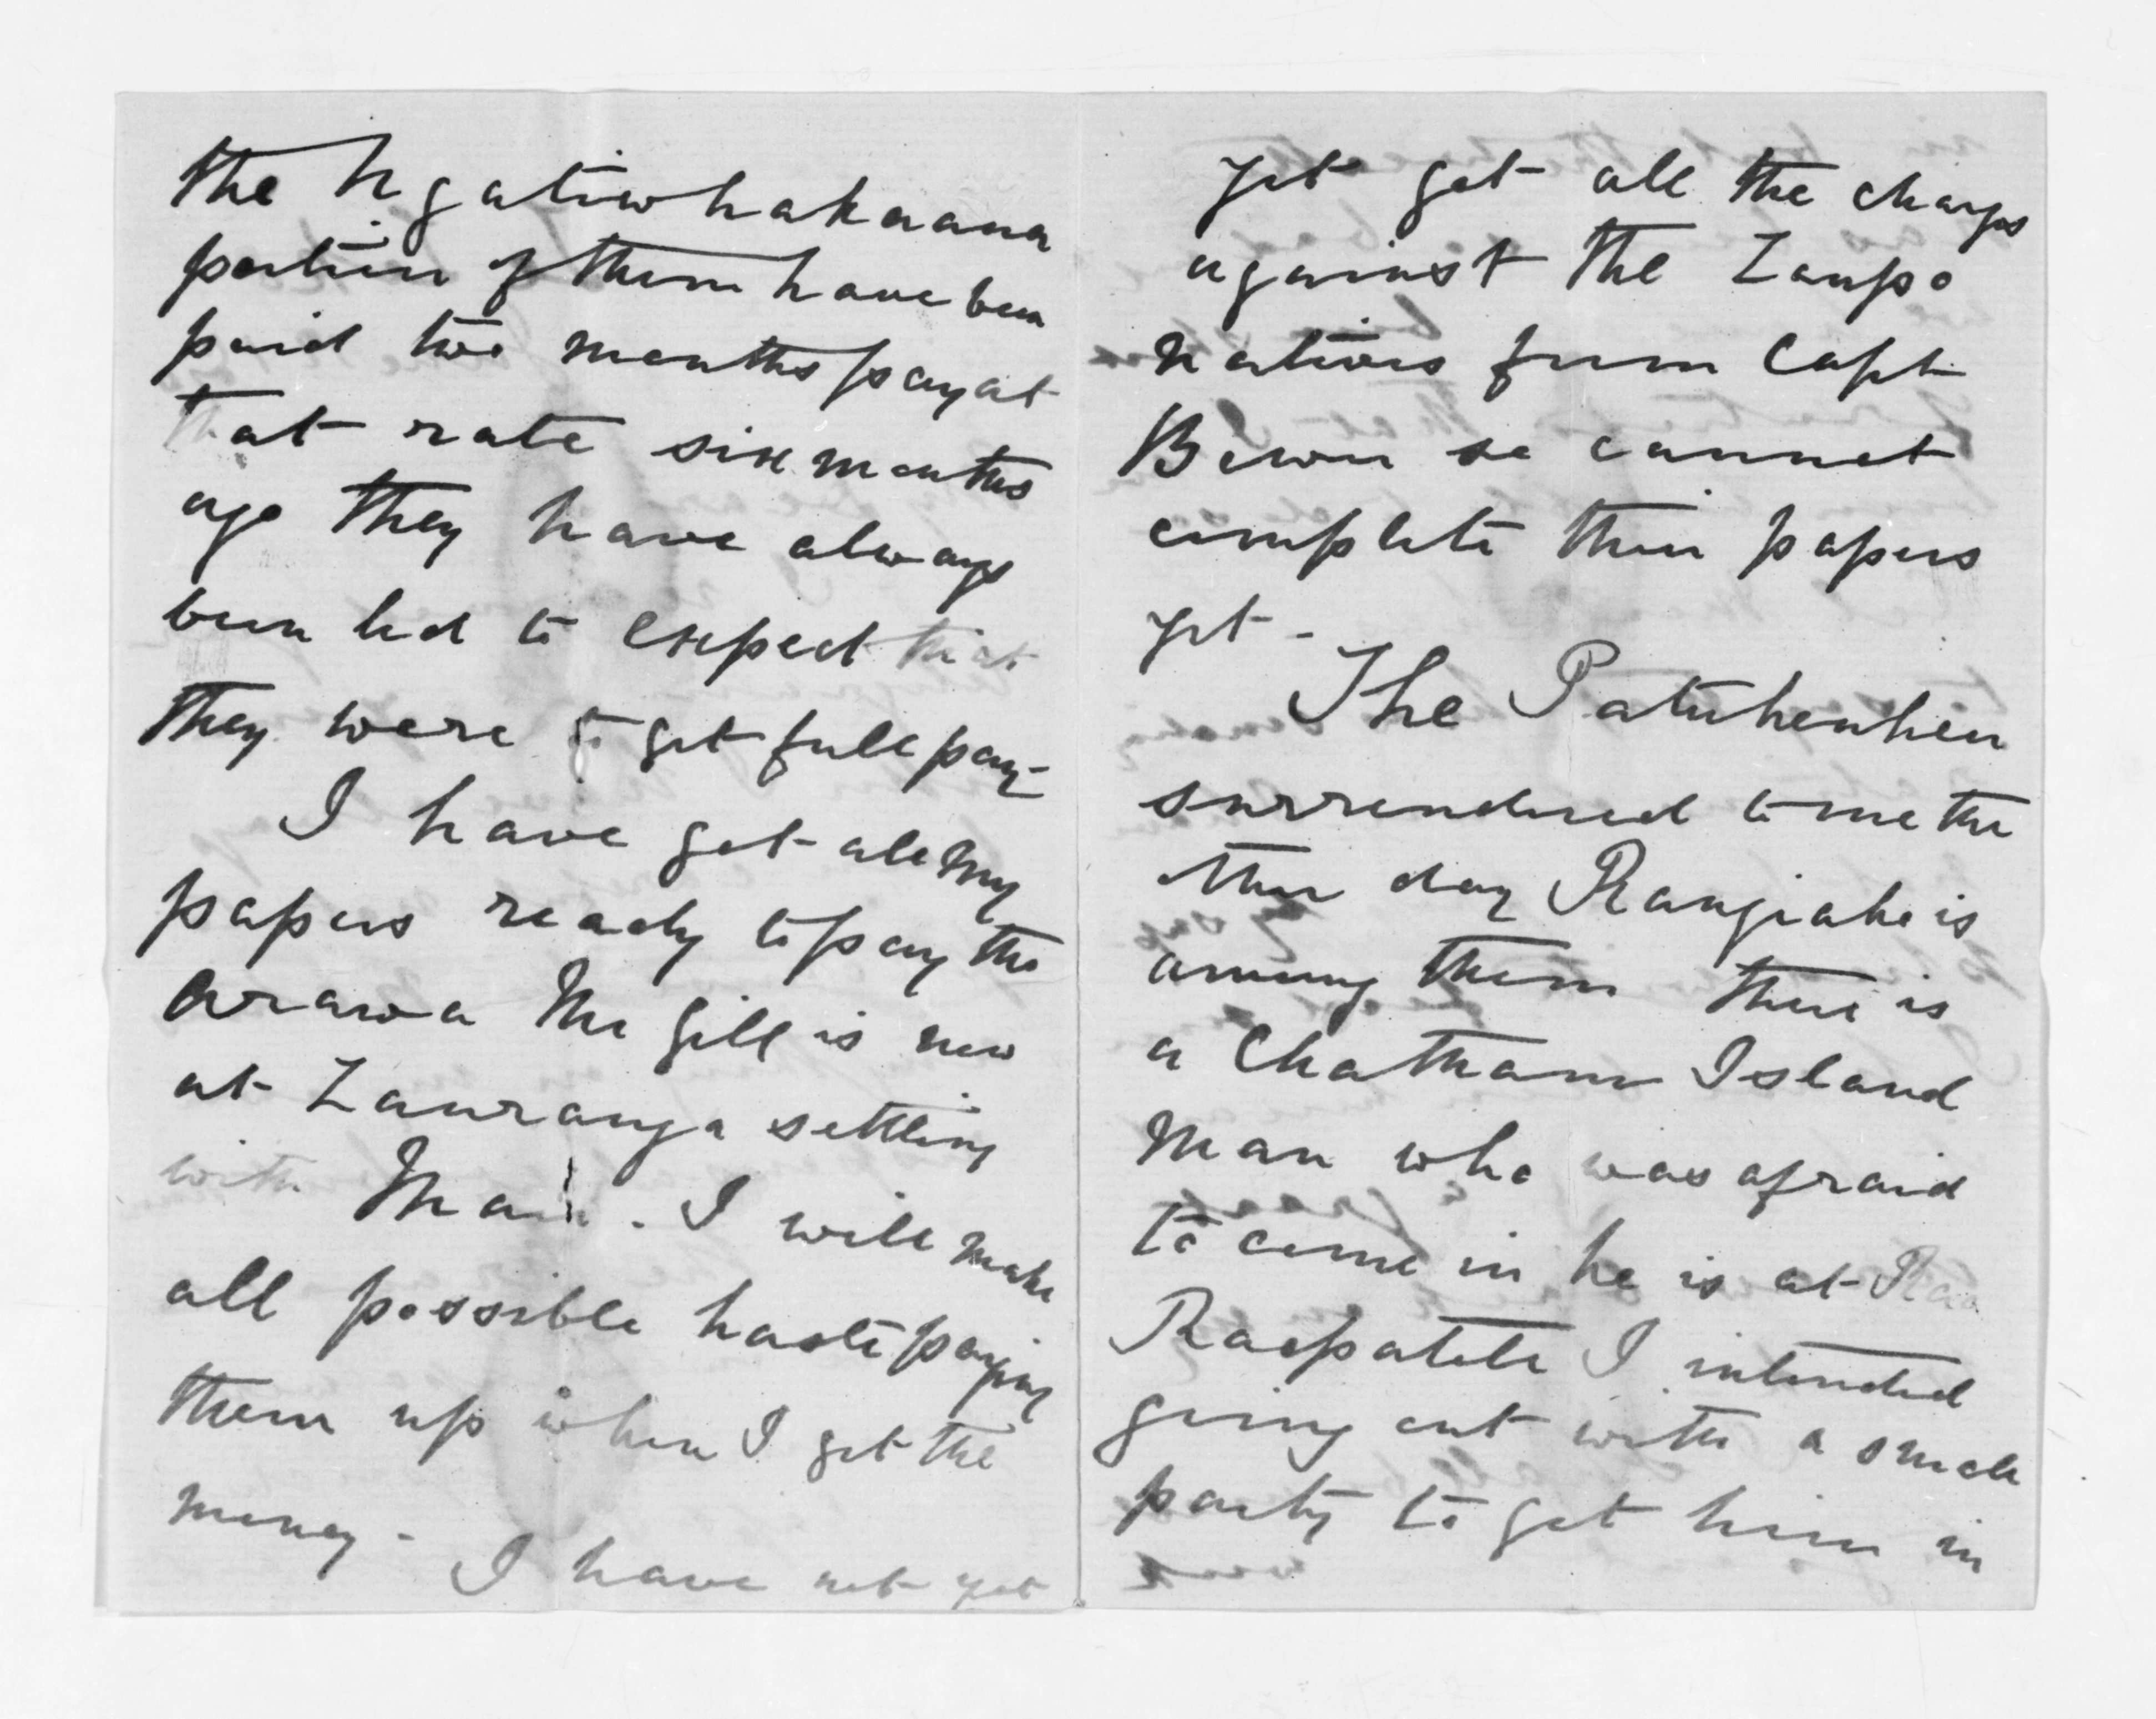 the Ngatiwhakaana
portion of them have been
paid two months pay at
that rate six months
ago they have always
been led to expect that
they were to get full pay -
I have got all my
papers ready to pay the
Arawa Mr Gill is now
at Tauranga settling
with Mair. I will make
all possible haste paying
them up when I get the
money - I have not yet
yet got all the charges
against the Taupo
natives from Capt
Bower so cannot
complete their papers
yet -
The Patuheuheu
surrendered to me the
other day Rangiaho is
among them there is
a Chatham Island
man who was afraid
to come in he is at
I intended
going out with a small
party to get him in